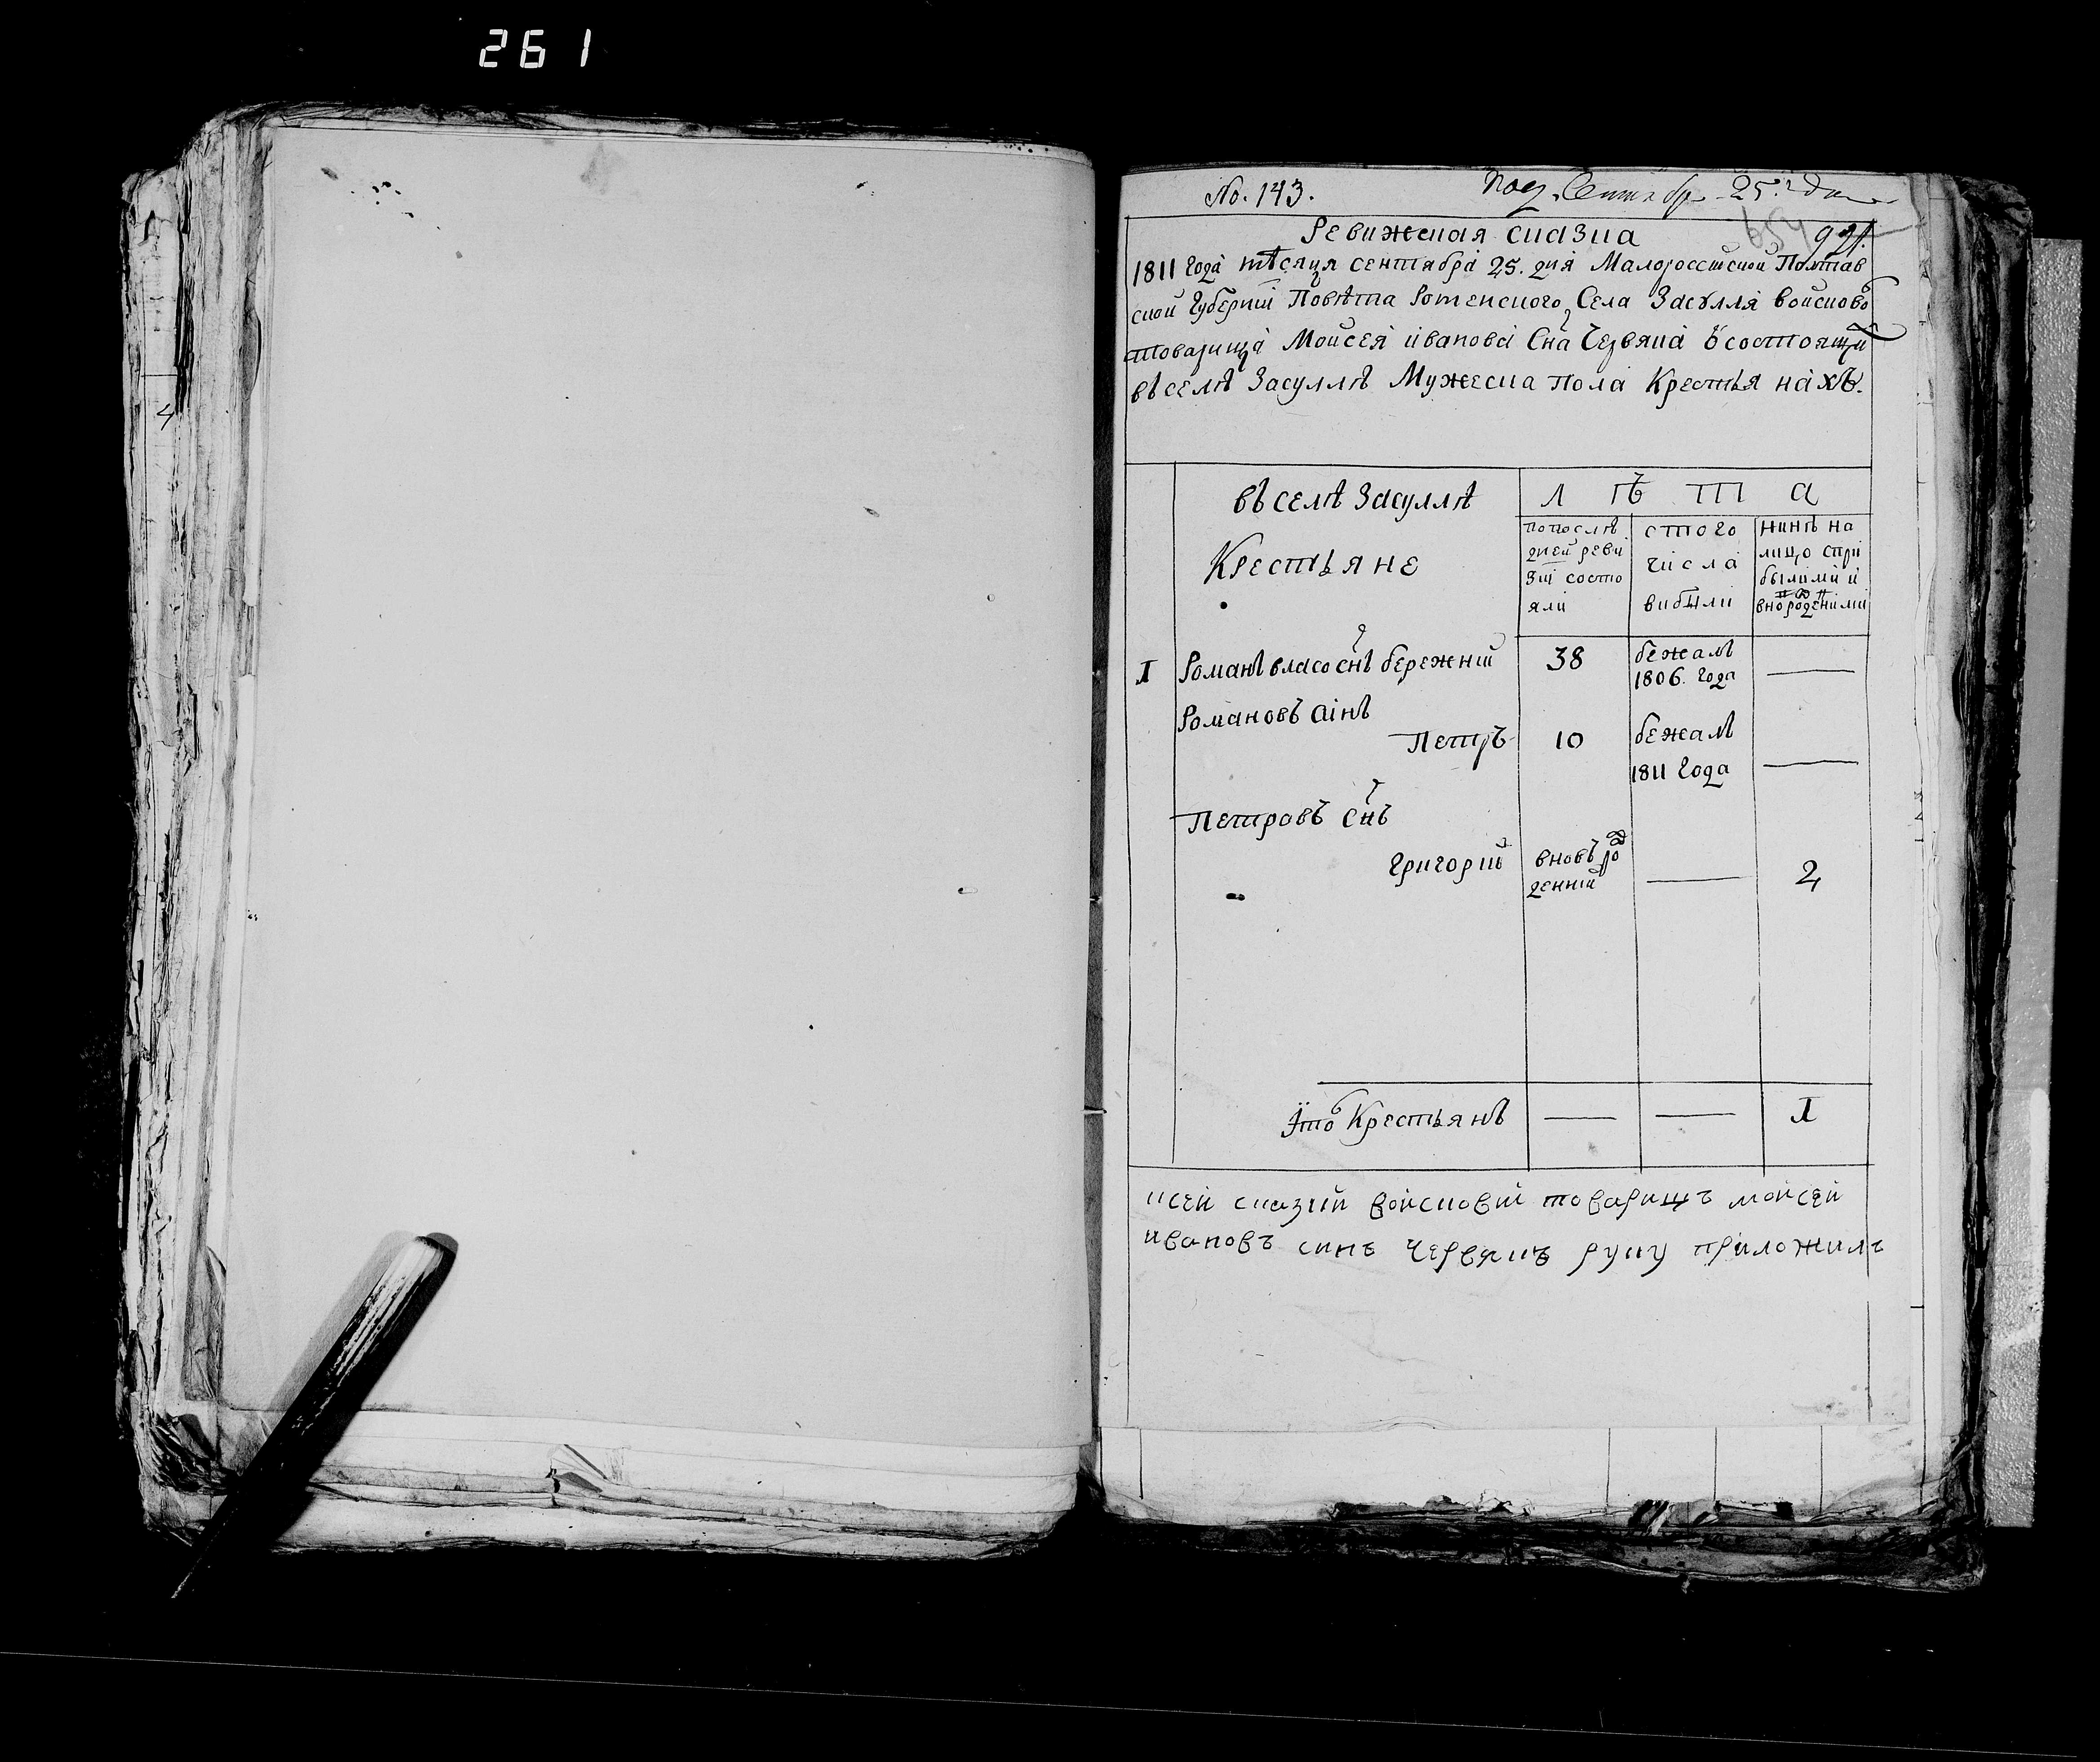 261
4
No. 143. Под. Сентябр 25.го дня
659 921.
Ревижская сказка
1811 года мѣсяця сентября 25. дня Малороссійской Полтав
ской губерніи Повѣта Роменского Села Засулля войсково
товарища Мойсея иванова Сна Червяка о состоящи
въ селѣ Засуллѣ Мужеска пола Крестьянахъ.
Въ селѣ Засуллѣ Л ѣ т а
Крестьяне
по послѣ
дней реви
зіи состо
яли
с того
числа
выбыли
нинѣ на
лицо с при
былими и
вно рожденими
1 Романъ власо снъ бережній 38 бежалъ
1806. года —
Романовъ синъ
Петръ 10 бежалъ
1811 года —
Петровъ снъ
Григорій вновъ рож
денній — 2
Ито Крестьянъ — — 1
к сей сказки войсковій товарищъ мойсей
ивановъ синъ Червякъ руку приложилъ